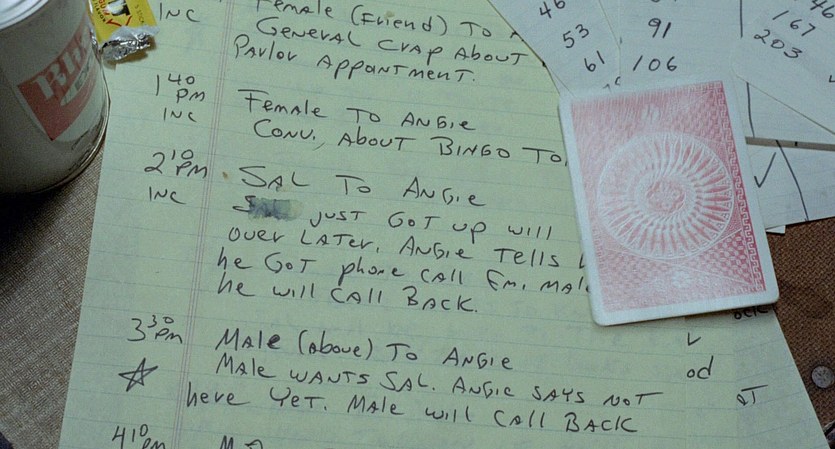 INC
Female (Friend) To
General Crap About
Parlor Appointment.
1 40 pm
INC
Female To Angie
Conv. About Bingo To
2 10 pm
INC
Sal To Angie
just got up will
over later. Angie tells
he got phone call Fm. Male
he will call back.
3 30 pm
Male (above) To Angie
Male wants Sal. Angie says not
here yet. Male will call back
4 10 pm
46
53
61
91
106
167
203
od